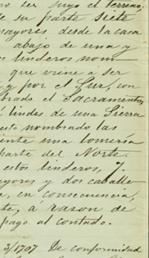 ser suyo el terreno
de su parte siete
mayores desde la casa
abajo de una y
linderos nom
que viene a ser
y por el Sur, con
brado el Sacramento
lindes de una Sierra
este nombrado las
ente una lomeria
parte del Norte
estos linderos, y.
mayores y dos caballe
en, en consecuencia,
te, a razon de
pago al contado.
3/1707 De conformidad